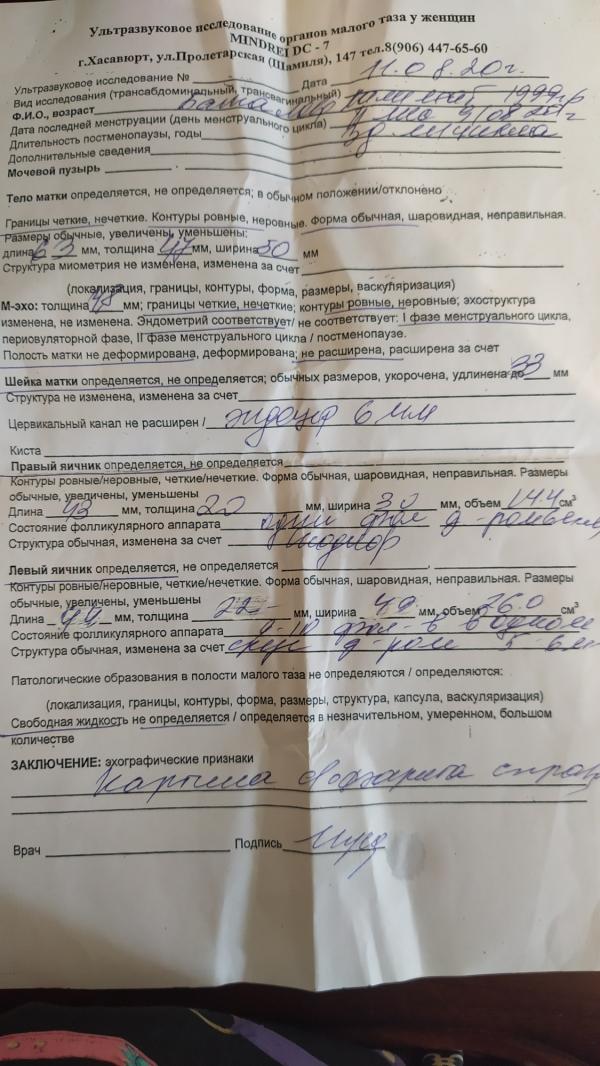 Ультразвуковое исследование органов малого таза у женщин
MINDREI DC - 7
г.Хасавюрт, ул.Пролетарская (Шамиля), 147 тел.8(906) 447-65-60
Ультразвуковое исследование № Дата 11.08.20г.
Вид исследования (трансабдоминальный, трансвагинальный)
Ф.И.О., возраст 1999гр
Дата последней менструации (день менструального цикла)
Длительность постменопаузы, годы
Дополнительные сведения
Мочевой пузырь
Тело матки определяется, не определяется; в обычном положении/отклонено
Границы четкие, нечеткие. Контуры ровные, неровные. Форма обычная, шаровидная, неправильная.
Размеры обычные, увеличены, уменьшены:
длина 63 мм, толщина 47 мм, ширина 50 мм
Структура миометрия не изменена, изменена за счет
(локализация, границы, контуры, форма, размеры, васкуляризация)
М-эхо: толщина мм; границы четкие, нечеткие; контуры ровные, неровные; эхоструктура
изменена, не изменена. Эндометрий соответствует/ не соответствует: I фазе менструального цикла,
периовуляторной фазе, II фазе менструального цикла / постменопаузе.
Полость матки не деформирована, деформирована; не расширена, расширена за счет
Шейка матки определяется, не определяется; обычных размеров, укорочена, удлинена до 33 мм
Структура не изменена, изменена за счет
Цервикальный канал не расширен / эндоцер 6 мм
Киста
Правый яичник определяется, не определяется
Контуры ровные/неровные, четкие/нечеткие. Форма обычная, шаровидная, неправильная. Размеры
обычные, увеличены, уменьшены
Длина 43 мм, толщина 20 мм, ширина 30 мм, объем 14.4 см³
Состояние фолликулярного аппарата
Структура обычная, изменена за счет
Левый яичник определяется, не определяется
Контуры ровные/неровные, четкие/нечеткие. Форма обычная, шаровидная, неправильная. Размеры
обычные, увеличены, уменьшены
Длина мм, толщина 22 мм, ширина мм, объем 26.0 см³
Состояние фолликулярного аппарата 9-10 фол-в в одном
Структура обычная, изменена за счет срезе д-ром 5-6
Патологические образования в полости малого таза не определяются / определяются:
(локализация, границы, контуры, форма, размеры, структура, капсула, васкуляризация)
Свободная жидкость не определяется / определяется в незначительном, умеренном, большом
количестве
ЗАКЛЮЧЕНИЕ: эхографические признаки
Картина оофорита справа
Врач Подпись